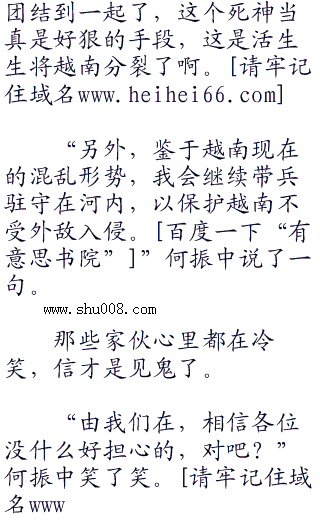 团结到一起了，这个死神当
真是好狠的手段，这是活生
生将越南分裂了啊。[请牢记
住域名www.heihei66.com]
“另外，鉴于越南现在
的混乱形势，我会继续带兵
驻守在河内，以保护越南不
受外敌入侵。[百度一下“有
意思书院”]”何振中说了一
句。
www.shu008.com
那些家伙心里都在冷
笑，信才是见鬼了。
“由我们在，相信各位
没什么好担心的，对吧？”
何振中笑了笑。[请牢记住域
名www